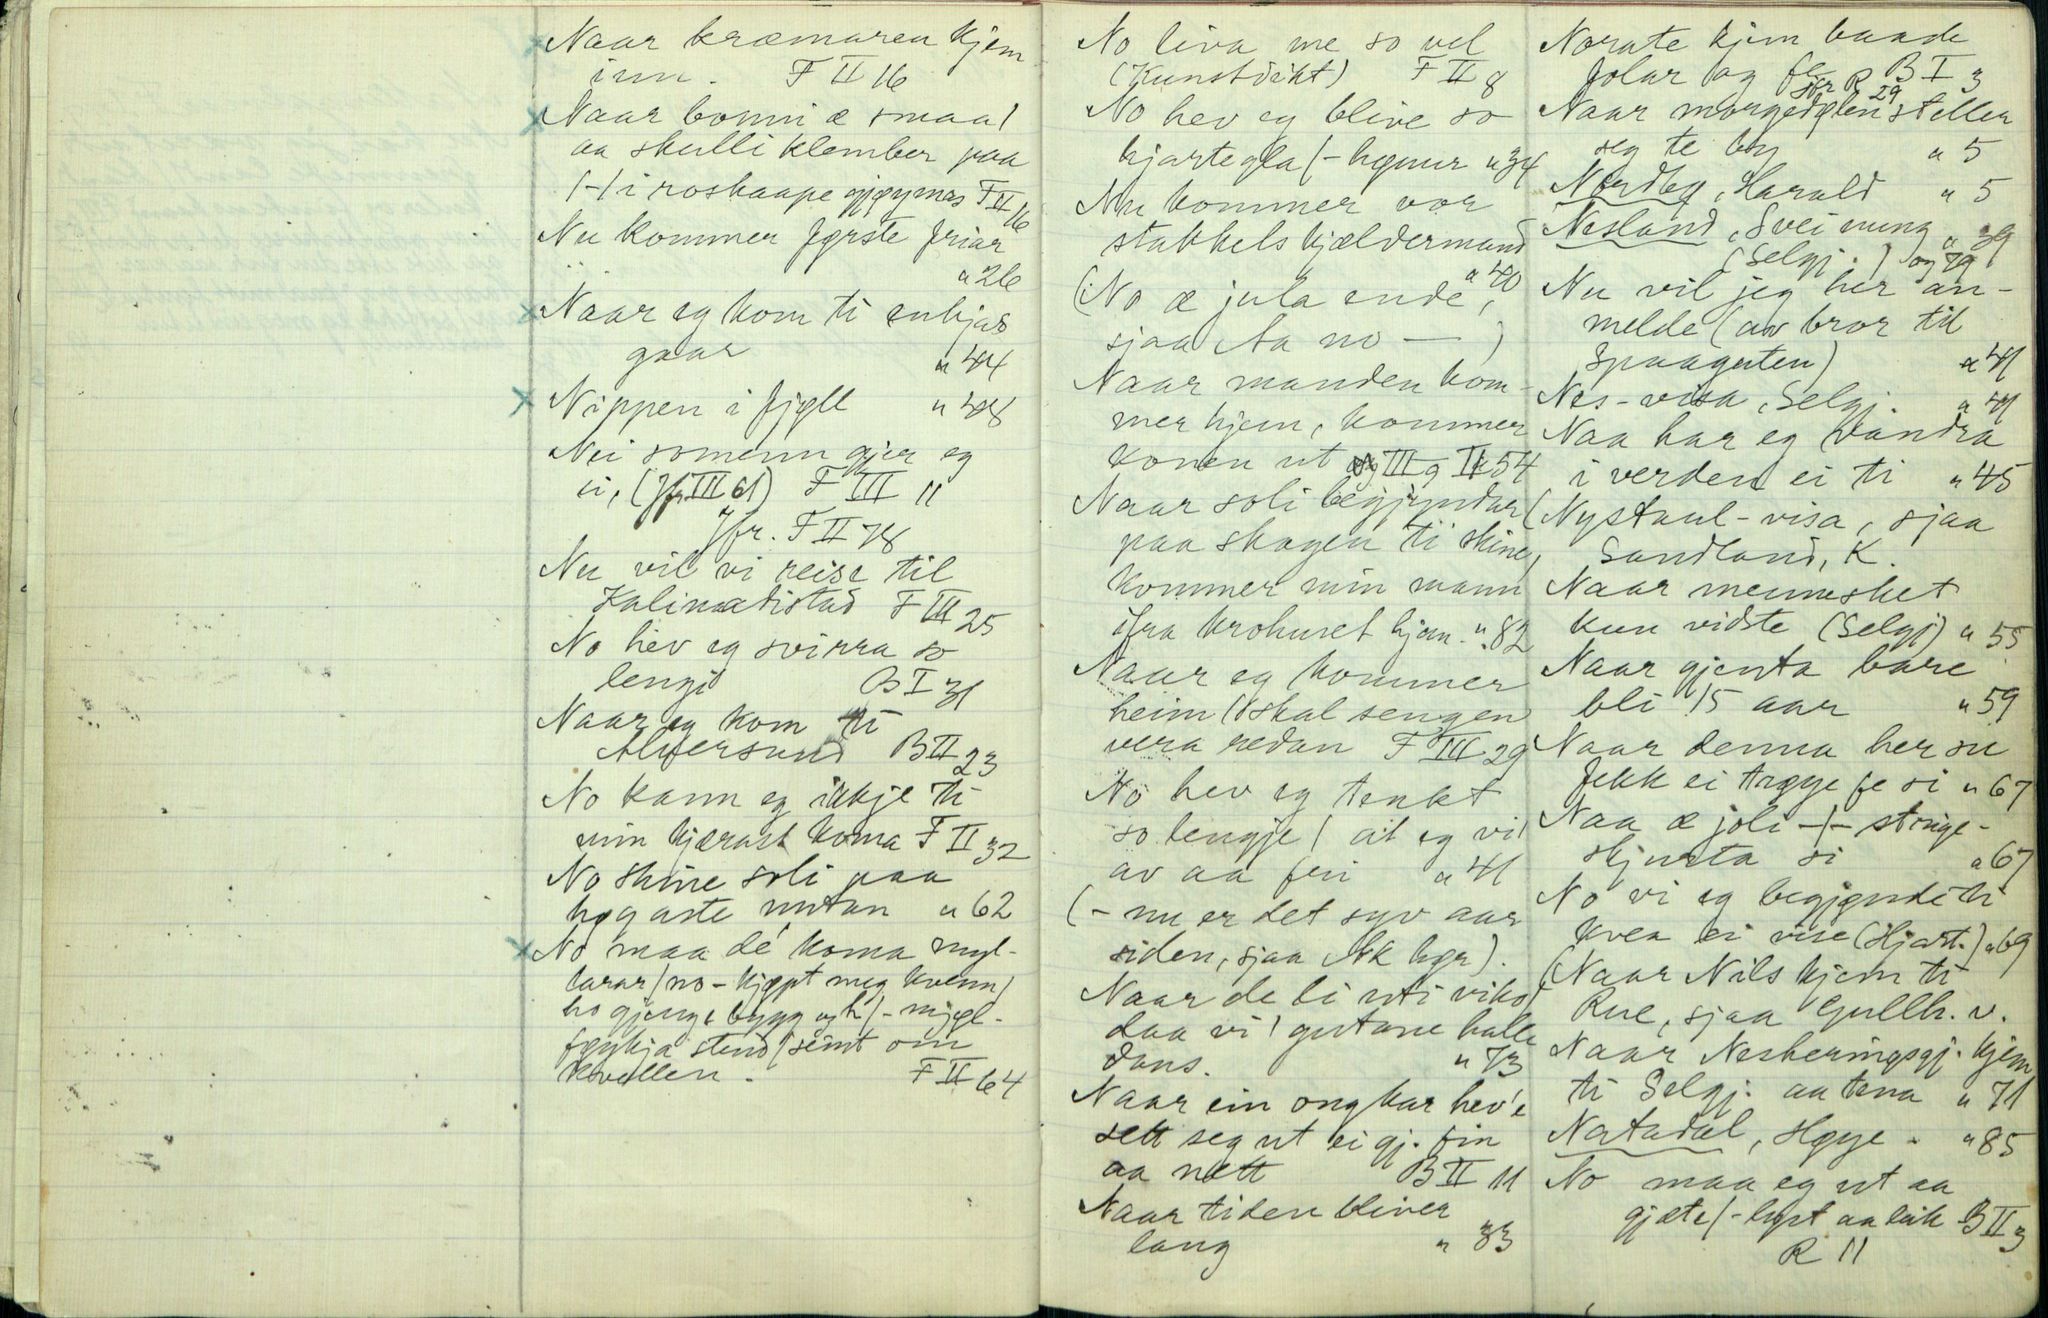 Naar kræmaren kjem
inn. F II 16
Naar bonni æ smaa /
aa skulli klember paa
/-/ i roskaape gjøymes F II 16
Nu kommer første friar
" 26
Naar eg kom ti
gaar " 44
Nippen i fjøll " 48
Nei somenn gjer eg
ei, (Jfr III 61) F III 11
Jfr. F II 78
Nu vil vi reise til
F III 25
No hev eg svirra so
lengji B I 31
Naar eg kom ti
Alversund B II 23
No kann eg ikkje ti
min kjærast koma F II 32
No skine soli paa
høgaste nutan " 62
No maa dé koma myl-
larar / no - kjøpt meg kvenn /
ho gjenge bygg og h / - mjøl-
føykja stend / seint om
kvelden. F II 64
No liva me so vel
(Kunstdikt) F II 8
No hev eg blive so
hjartegla / - hønur " 34
Nu kommer vor
stabbels kjældermand
" 40
(No æ jula ende,
sjaa Aa no — )
Naar manden kom-
mer hjem, kommer
konen ut III 9 II 54
Naar soli begjyndar
paa skogen ti skine,
kommer min mann
ifra krohuset hjem. " 82
Naar eg kommer
heim / skal sengen
vera redan F III 29
No hev eg tenkt
so lengje / at eg vil
av aa fri " 41
(- nu er det syv aar
siden, sjaa Ak her).
Naar de li uti viko /
daa vi / gutane halle
dans. " 73
Naar ein ong kar hev'e
sett seg ut ei gj. fin
aa nett B II 11
Naar tiden bliver
lang " 33
Norate kjem baade
folar og fe B I 3
Jfr R 29
Naar morgedølen steller
seg te by " 5
Nordbø, Harald " 5
Nesland, Sveinung " 39
(Selgj.) og 79
Nu vil jeg her an-
melde (av bror til
Spaaguten) " 41
Nes-visa, Selgj. " 41
Naa har eg vandra
i verden ei ti " 45
(Nystaul-visa, sjaa
Sandland, K.
Naar mennesket
kun vidste (Selgj) " 55
Naar gjenta bare
bli 15 aar " 59
Naar denna her su
fekk ei trøye fe si " 67
Naa æ joli -/- stinge-
skjurta si " 67
No vi eg begjynde ti
kvea ei vise (Hjart.) " 69
(Naar Nils kjem ti
Rue, sjaa Gullh. v.
Naar Nesheringsgj. kjem
ti Selgj. aa tena " 71
Natadal, Høye. " 85
No maa eg ut aa
gjæte / - lyst aa leik B II 3
R 11